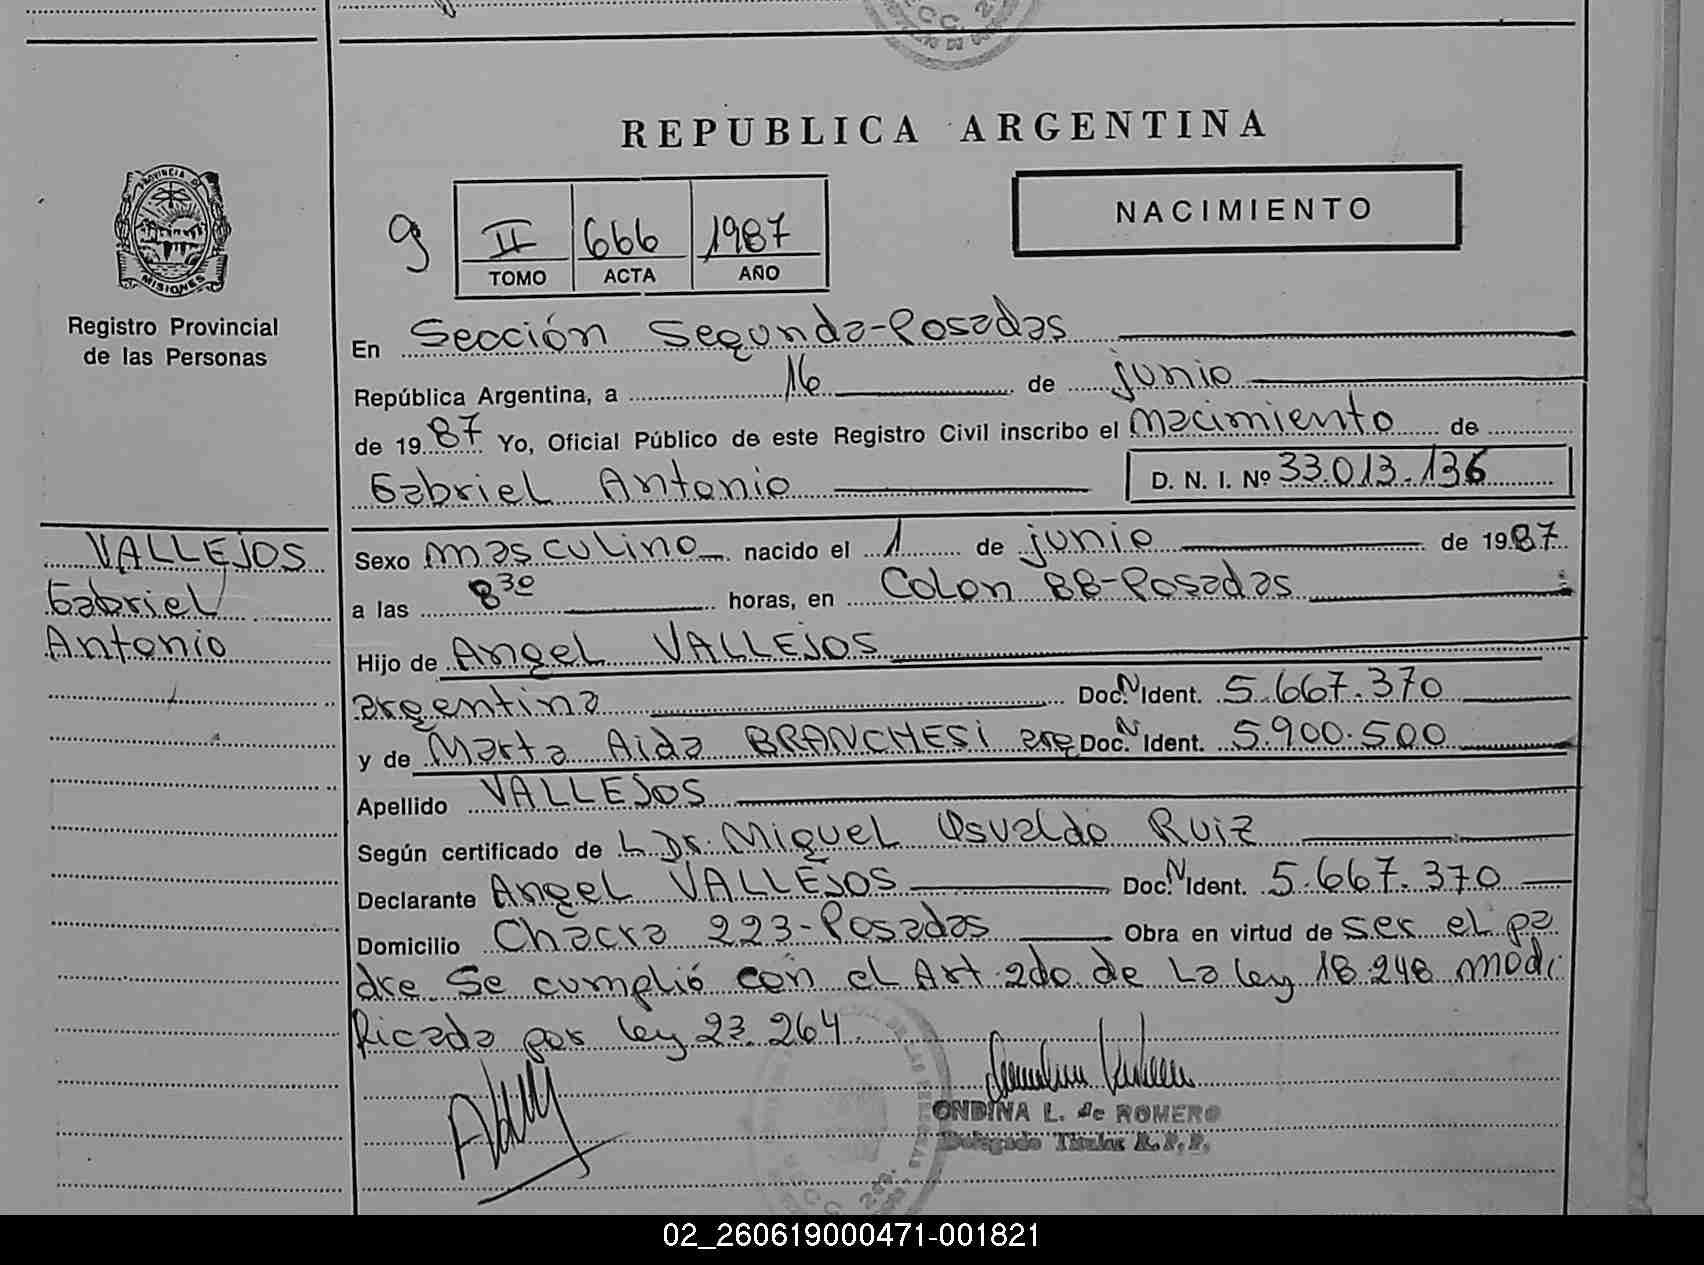 REPUBLICA ARGENTINA
PROVINCIA DE
MISIONES
Registro Provincial
de las Personas
9 II 666 1987
TOMO ACTA AÑO
NACIMIENTO
En Sección Segunda-Posadas
República Argentina, a 16 de junio
de 1987 Yo, Oficial Público de este Registro Civil inscribo el nacimiento de
Gabriel Antonio D. N. I. Nº 33.013.136
VALLEJOS
Gabriel
Antonio
Sexo masculino nacido el 1 de junio de 1987
a las 8 30 horas, en Colon BB-Posadas
Hijo de Angel VALLEJOS
argentina Doc. N Ident. 5.667.370
y de Marta Aida BRANCHESi arg Doc. N Ident. 5.900.500
Apellido VALLEJOS
Según certificado de L Dr. Miguel Osvaldo Ruiz
Declarante Angel VALLEJOS Doc. N Ident. 5.667.370
Domicilio Chacra 223-Posadas Obra en virtud de ser el pa
dre Se cumplió con el Art 2do de La ley 18.248 modi
ficada por ley 23.264
ONDINA L. de ROMERO
Delegado Titular R.P.P.
02_260619000471-001821